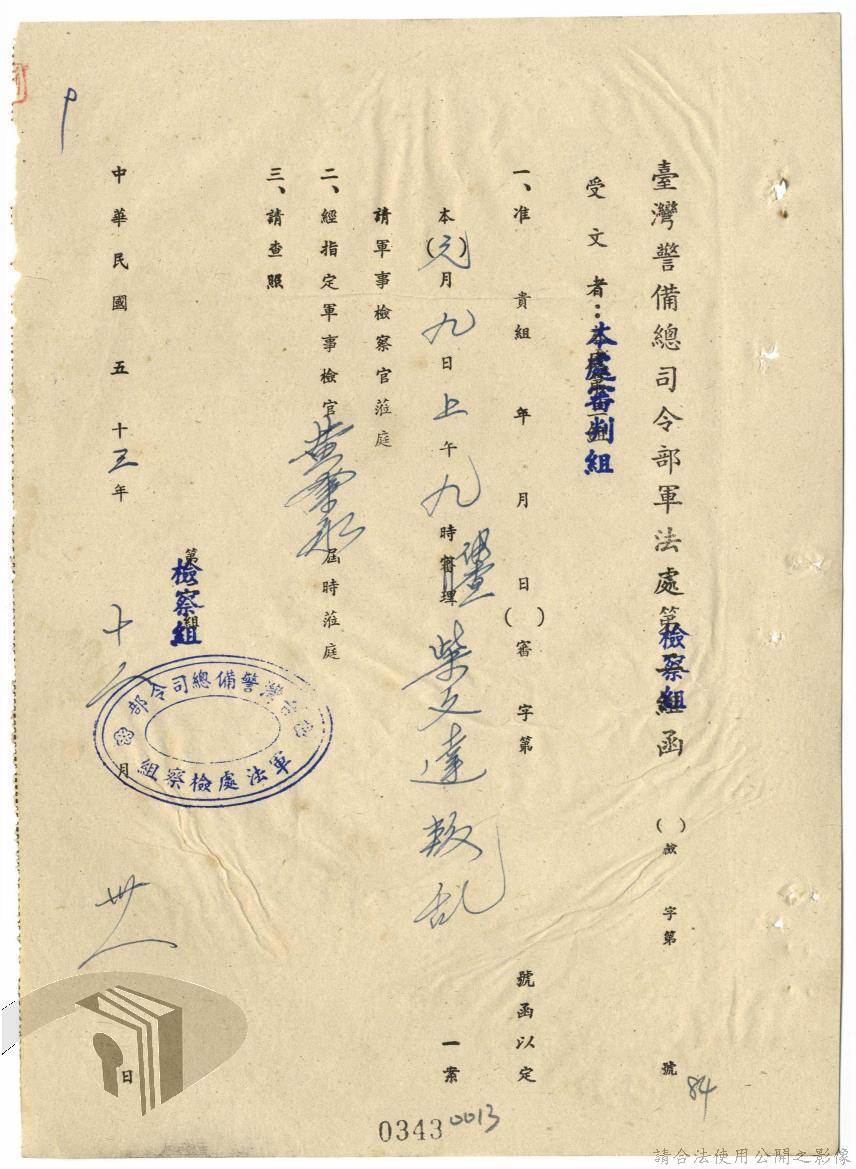 臺灣警備總司令部軍法處第檢察組函 ( ) 檢 字第 號
84
受文者：本處審判組
一、准 貴組 年 月 日 ( ) 審 字第 號函以定
本(元)月九日上午九時審理 柴之達叛乱 一案
請軍事檢察官蒞庭
二、經指定軍事檢官 屆時蒞庭
三、請查照
檢察組
台灣警備總司令部
軍法處檢察組
中華民國五十三年 十二 月 卅一 日
0343
0013
請合法使用公開之影像